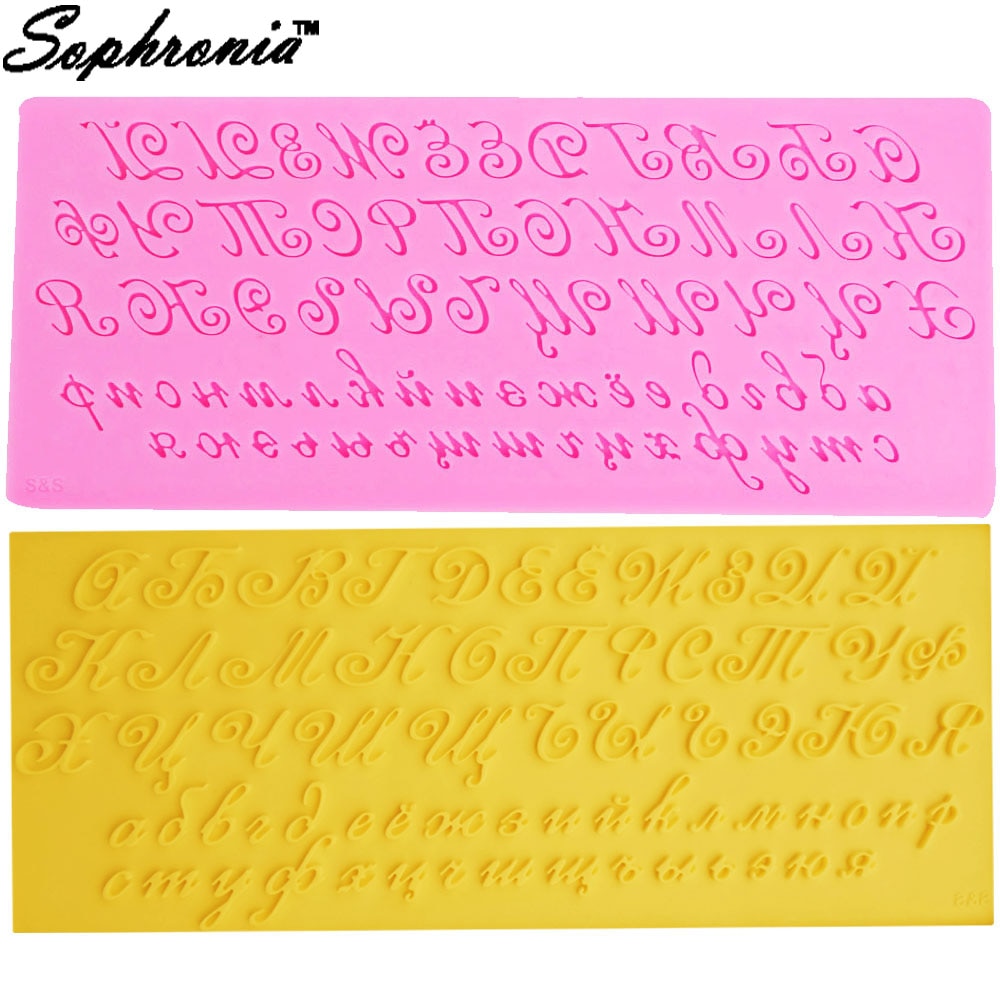 Sophronia™
АБВГДЕЁЖЗИЙ
КЛМНОПРСТУФ
ХЦЧШЩЪЫЬЭЮЯ
абвгдеёжзийклмнопр
стуфхцчшщъыьэюя
S&S
АБВГДЕЁЖЗИЙ
КЛМНОПРСТУФ
ХЦЧШЩЪЫЬЭЮЯ
абвгдеёжзийклмнопр
стуфхцчшщъыьэюя